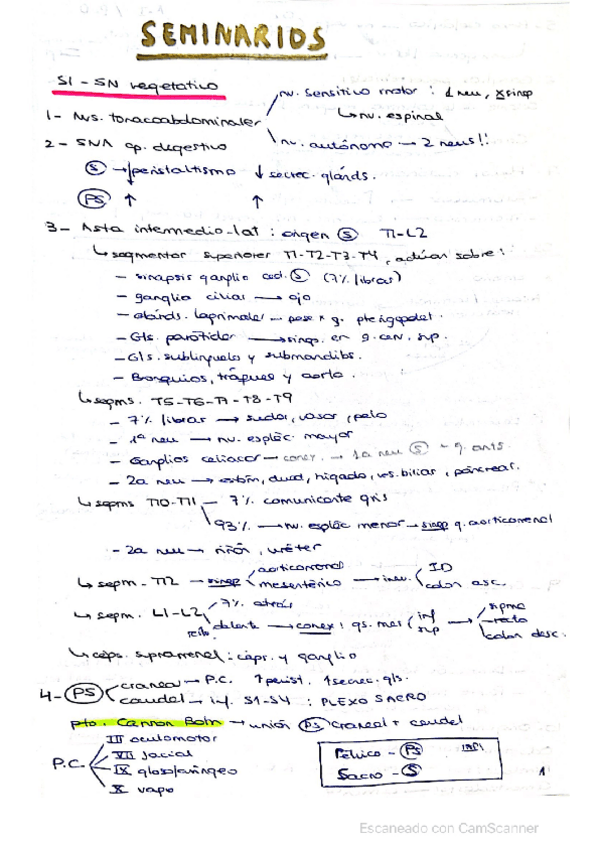 SEMINARIOS
S1 - SN vegetativo
1 - Nvs. toracoabdominales nv. sensitivo motor : 1 neu, x sinap
↳ nv. espinal
nv. autónomo → 2 neus!!
2 - SNA ap. digestivo
Ⓢ → ↓ peristaltismo ↓ secrec. glánds.
ⓅⓈ ↑ ↑
3 - Asta intermedio-lat : origen Ⓢ T1-L2
↳ segmentos superiores T1-T2-T3-T4, actúan sobre :
- sinapsis ganglio Ⓢ (7% fibras)
- ganglio ciliar → ojo
- glánds. lagrimales - pasa x g. pterigopalat.
- Gls. parótidas → sinap. en g. cerv. sup.
- Gls. sublinguales y submandibs.
- Bronquios, tráquea y aorta.
↳ segms. T5-T6-T7-T8-T9
- 7% fibras → sudor, vasos, pelo
- 1ª neu → nv. esplác. mayor
- Ganglios celiacos - conex. → 1a neu Ⓢ
- 2a neu → estóm, duod, hígado, vs. biliar, páncreas.
↳ segms T10-T11 - 7% comunicante gris
93% → nv. esplác menor → sinap g. aorticorrenal
- 2a neu → riñón, uréter
↳ segm - T12 → sinap aorticorrenal
mesentérico → inerv. ID
colon asc.
↳ segm. L1-L2 7% atrás
resto delante → conex : gs. mes inf
sup → sigma
recto
colon desc.
↳ cáps. suprarrenal : cáps. y ganglio
4 - ⓅⓈ craneal → P.C. ↑ perist. ↑ secrec. gls.
caudal → inf. S1-S4 : PLEXO SACRO
pto. Cannon Bohm → unión ⓅⓈ craneal + caudal
P.C. III oculomotor
VII facial
IX glosofaríngeo
X vago
Pélvico - ⓅⓈ INFI
Sacro - Ⓢ
1
Escaneado con CamScanner